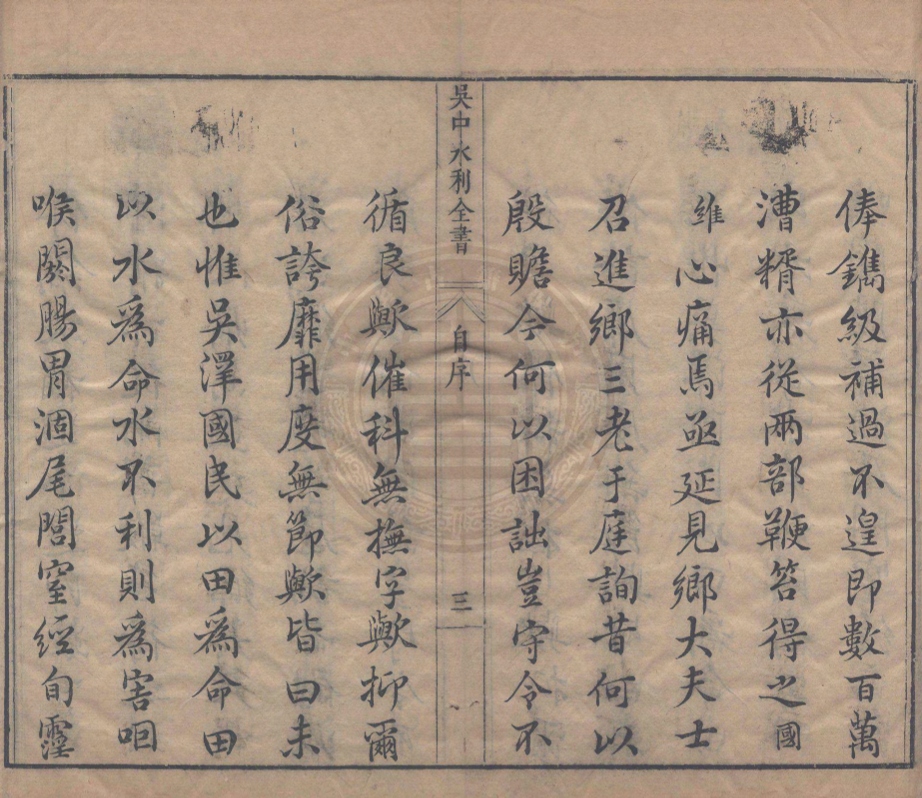 俸鐫級補過不遑即數百萬
漕糈亦從兩部鞭笞得之國
維心痛焉亟延見鄉大夫士
召進鄉三老于庭詢昔何以
殷贍今何以困詘豈守令不
吳中水利全書 自序 三
循良歟催科無撫字歟抑爾
俗誇靡用度無節歟皆曰未
也惟吳澤國民以田爲命田
以水爲命水不利則爲害咽
喉閼腸胃涸尾閭窒經旬霪